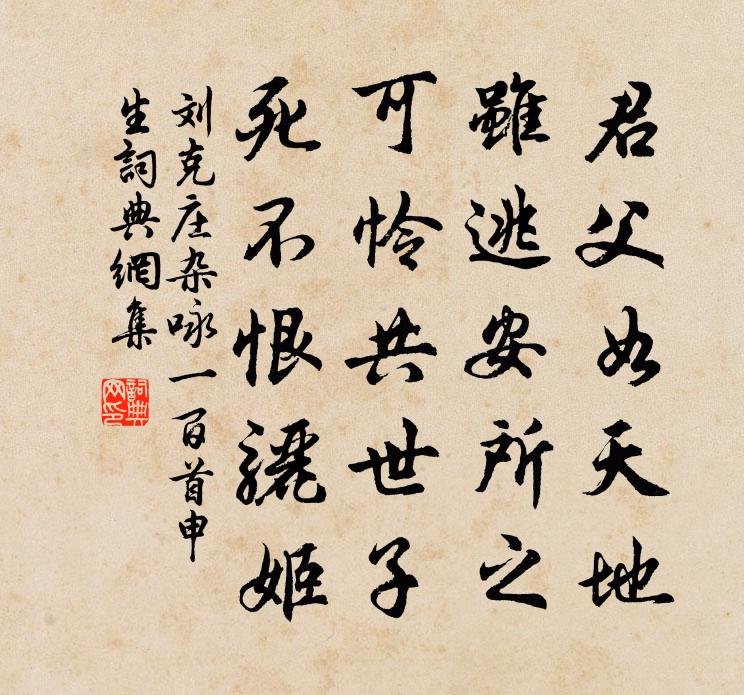 君父如天地
雖逃安所之
可怜共世子
死不恨驪姬
刘克庄杂咏一百首申
生詞典網集
詞典網印